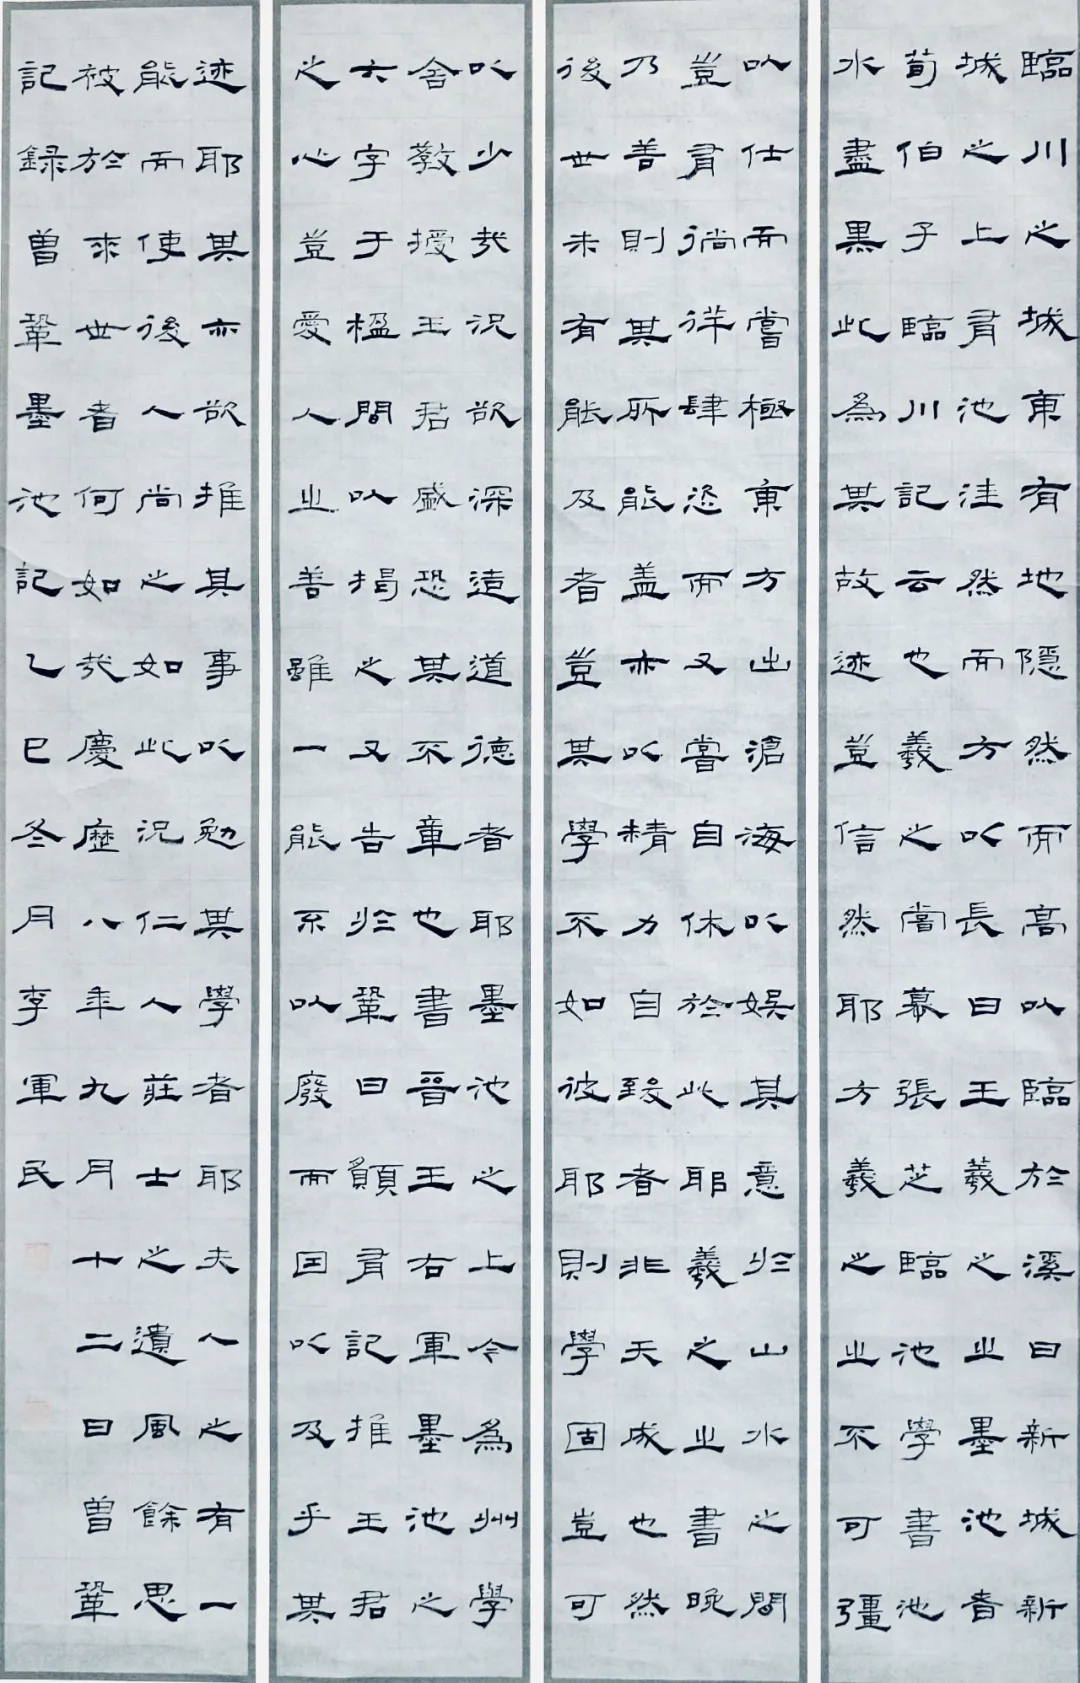 臨川之城東有地隱然而高以臨於溪曰新城新
城之上有池洼然而方以長曰王羲之之墨池者
荀伯子臨川記云也羲之嘗慕張芝臨池學書池
水盡黑此為其故迹豈信然耶方羲之之不可彊
以仕而嘗極東方出滄海以娛其意於山水之間
豈有徜徉肆恣而又嘗自休於此耶羲之之書晚
乃善則其所能盖亦以精力自致者非天成也然
後世未有能及者豈其學不如彼耶則學固豈可
以少哉況欲深造道德者耶墨池之上今為州學
舍教授王君盛恐其不章也書晉王右軍墨池之
六字于楹間以揭之又告於鞏曰願有記推王君
之心豈愛人之善雖一能不以廢而因以及乎其
迹耶其亦欲推其事以勉其學者耶夫人之有一
能而使後人尚之如此況仁人莊士之遺風餘思
被於來世者何如哉慶歷八年九月十二日曾鞏
記錄曾鞏墨池記乙巳冬月李軍民